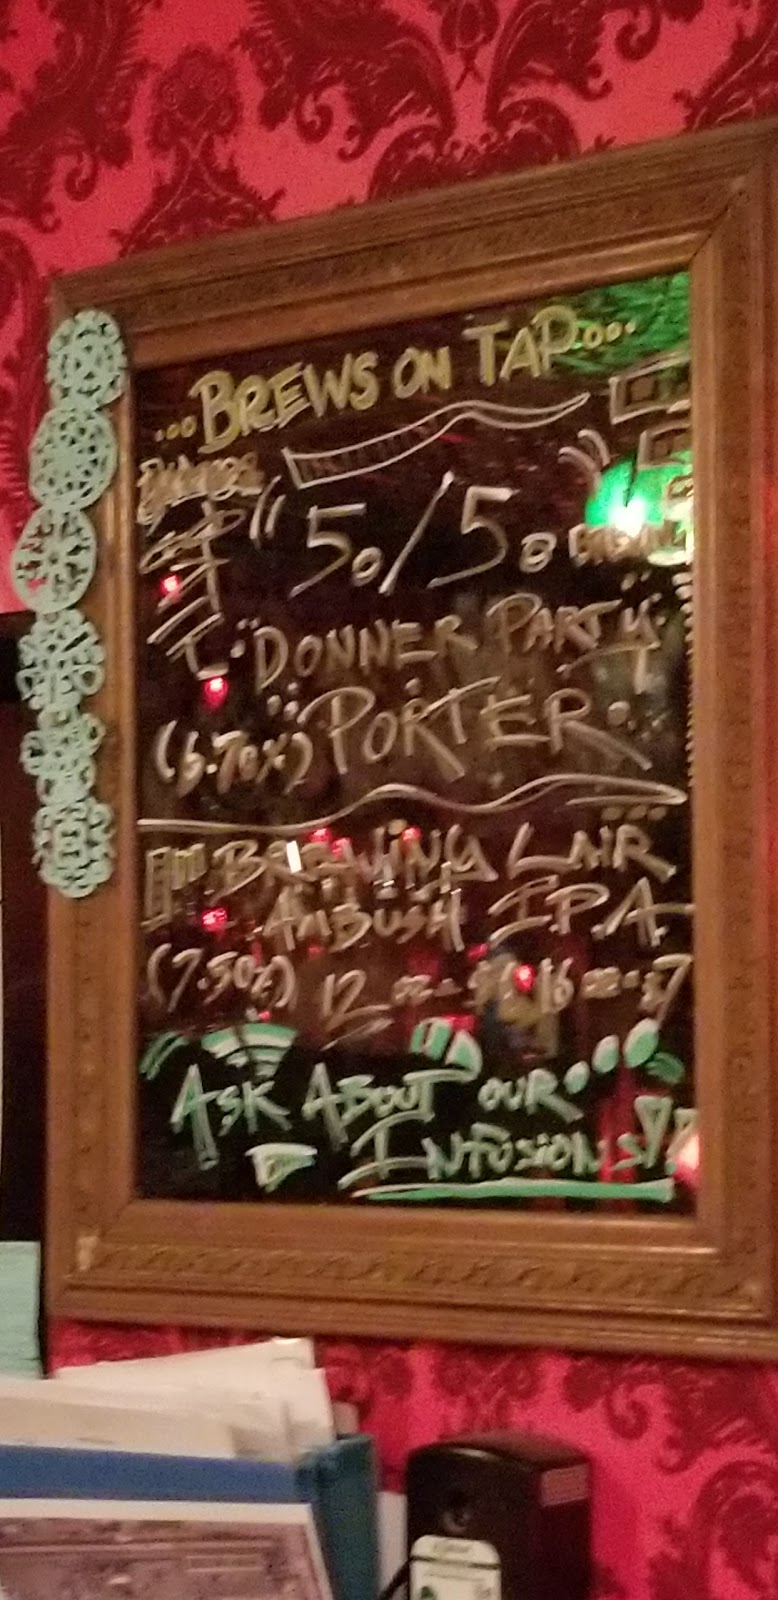 ...BREWS ON TAP...
"50/50 BREWING
"DONNER PARTY"
(6.70%) PORTER
BREWING LAIR
AMBUSH I.P.A.
(7.50%) 12 oz - $6 16 oz - $7
ASK ABOUT OUR...
INFUSIONS!!